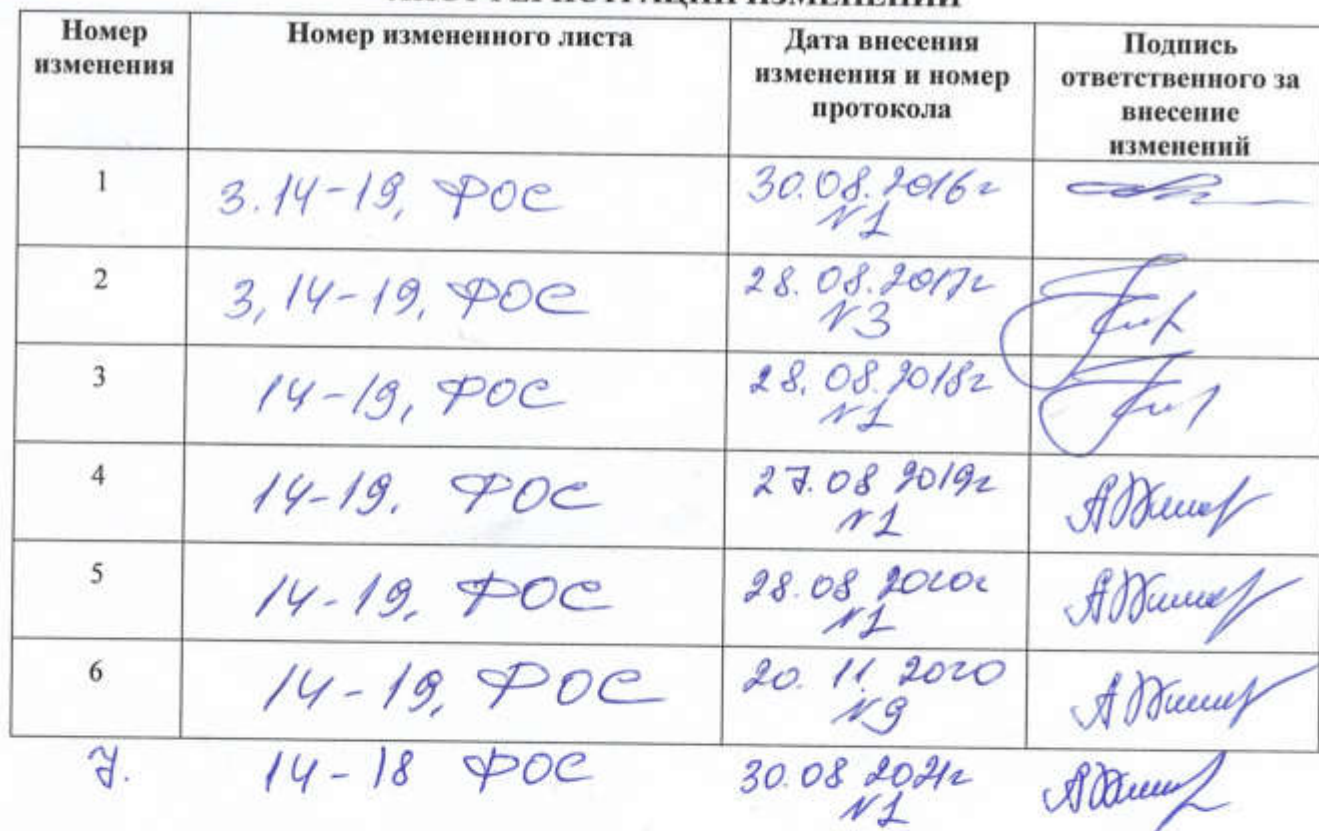 Номер изменения Номер измененного листа Дата внесения изменения и номер протокола Подпись ответственного за внесение изменений
1 3.14-19, ФОС 30.08.2016г
N1
2 3,14-19, ФОС 28.08.2017г
N3
3 14-19, ФОС 28.08.2018г
N1
4 14-19. ФОС 27.08 2019г
N1
5 14-19, ФОС 28.08 2020г
N1
6 14-19, ФОС 20. 11. 2020
N9
7. 14-18 ФОС 30.08 2021г
N1